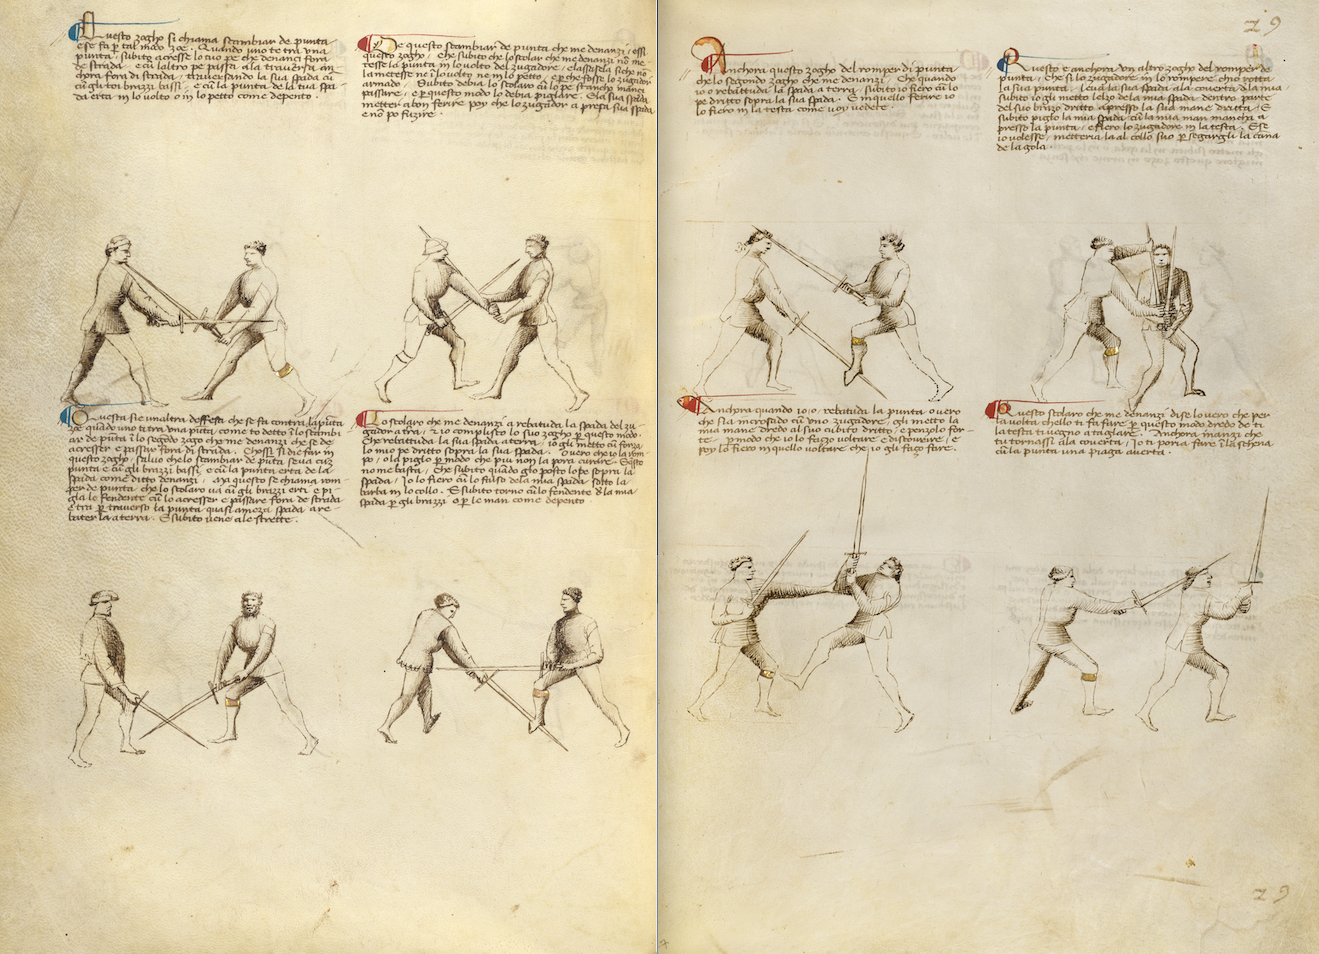 Questo zogho si chiama scambiar de punta
e se fa per tal modo zoe. Quando uno te tra una
punta subito acresse lo tuo pe che denanci fora
de strada e cum l'oltro pe passa ala traversa an-
chora fora di strada traversando la sua spada cum
cum gli toi brazzi bassi e cum la punta de la tua spa-
da erta in lo volto o in lo petto come depento.
De questo scambiar de punta che me denanzi essi
questo zogho. Che subito che lo scolar che me denanzi no me-
tesse la punta in lo volto del zugadore
la metesse ne in lo volto ne in lo petto e per che fosse lo zugador
armado. Subito debia lo scolaro cum lo pe stancho inanci
passare e per questo modo lo debia pigliare. E la sua spada
metter a bon ferire poy che lo zugador a presa sua spada
e no po fuzire.
Questa si e un altra deffesa che se fa contra la punta
zo e quando uno ti tra una punta come to detto in lo scambi-
ar de punta in lo segondo zogho che me denanzi che se de
acresser e passar fora di strada. Chossi si de far in
questo zogho salvo che lo scambiar de punta se va cum
punta e cum gli brazzi bassi e cum la punta erta de la
spada come ditto denanzi. Ma questo se chiama rom-
per de punta che lo scolaro va cum gli brazzi erti e pi-
gla lo fendente cum lo acresser e passare fora de strada
e tra per traverso la punta quasi a meza spada a re-
baterla a terra. E subito vene a le strette.
Lo scolaro che me denanzi a rebatuda la spada del zu-
gadore a terra e io complisco lo suo zogho per questo modo.
Che rebattuda la sua spada a terra io gli metto cum forza
lo mio pe dritto sopra la sua spada. Overo che io la rom-
po o la piglo per modo che piu non la pora curare. E questo
no me basta. Che subito quando gl'o posto lo pe sopra la
spada Io lo fiero cum lo falso de la mia spada sotto la
barba in lo collo. E subito torno cum lo fendente de la mia
spada per gli brazzi o per le man come depento.
29
Anchora questo zogho del romper di punta
che lo segondo zogho che me denanzi. Che quando
io o rebattuda la spada a terra subito io fiero cum lo
pe dritto sopra la sua spada. E in quello ferire io
lo fiero in la testa come voy vedete.
Questo e anchora un altro zogho del romper de
punta. Che si lo zugadore in lo rompere ch'io rotta
la sua punta leva la sua spada a la coverta de la mia
subito io gli metto l'elzo de la mia spada dentro parte
del suo brazzo dritto apresso la sua mane dritta. E
subito piglo la mia spada cum la mia man mancha a-
presso la punta e fiero lo zugadore in la testa. E se
io volesse metteria la al collo suo per segargli la cana
de la gola.
Anchora quando io o rebatuda la punta overo
che si'a incrosado cum uno zugadore gli metto la
mia mane dredo al suo cubito dritto e penzolo for-
te per modo che io lo fazzo voltare e discovrire e
poy lo fiero in quello voltare che io gli fazo fare.
Questo scolaro che me denanzi dise lo vero che per
la volta che llo ti fa fare per questo modo dredo de ti
la testa ti vegno a taglare. Anchora inanzi che
tu tornassi a la coverta Io ti poria fare in la schena
cum la punta una piaga averta.
29